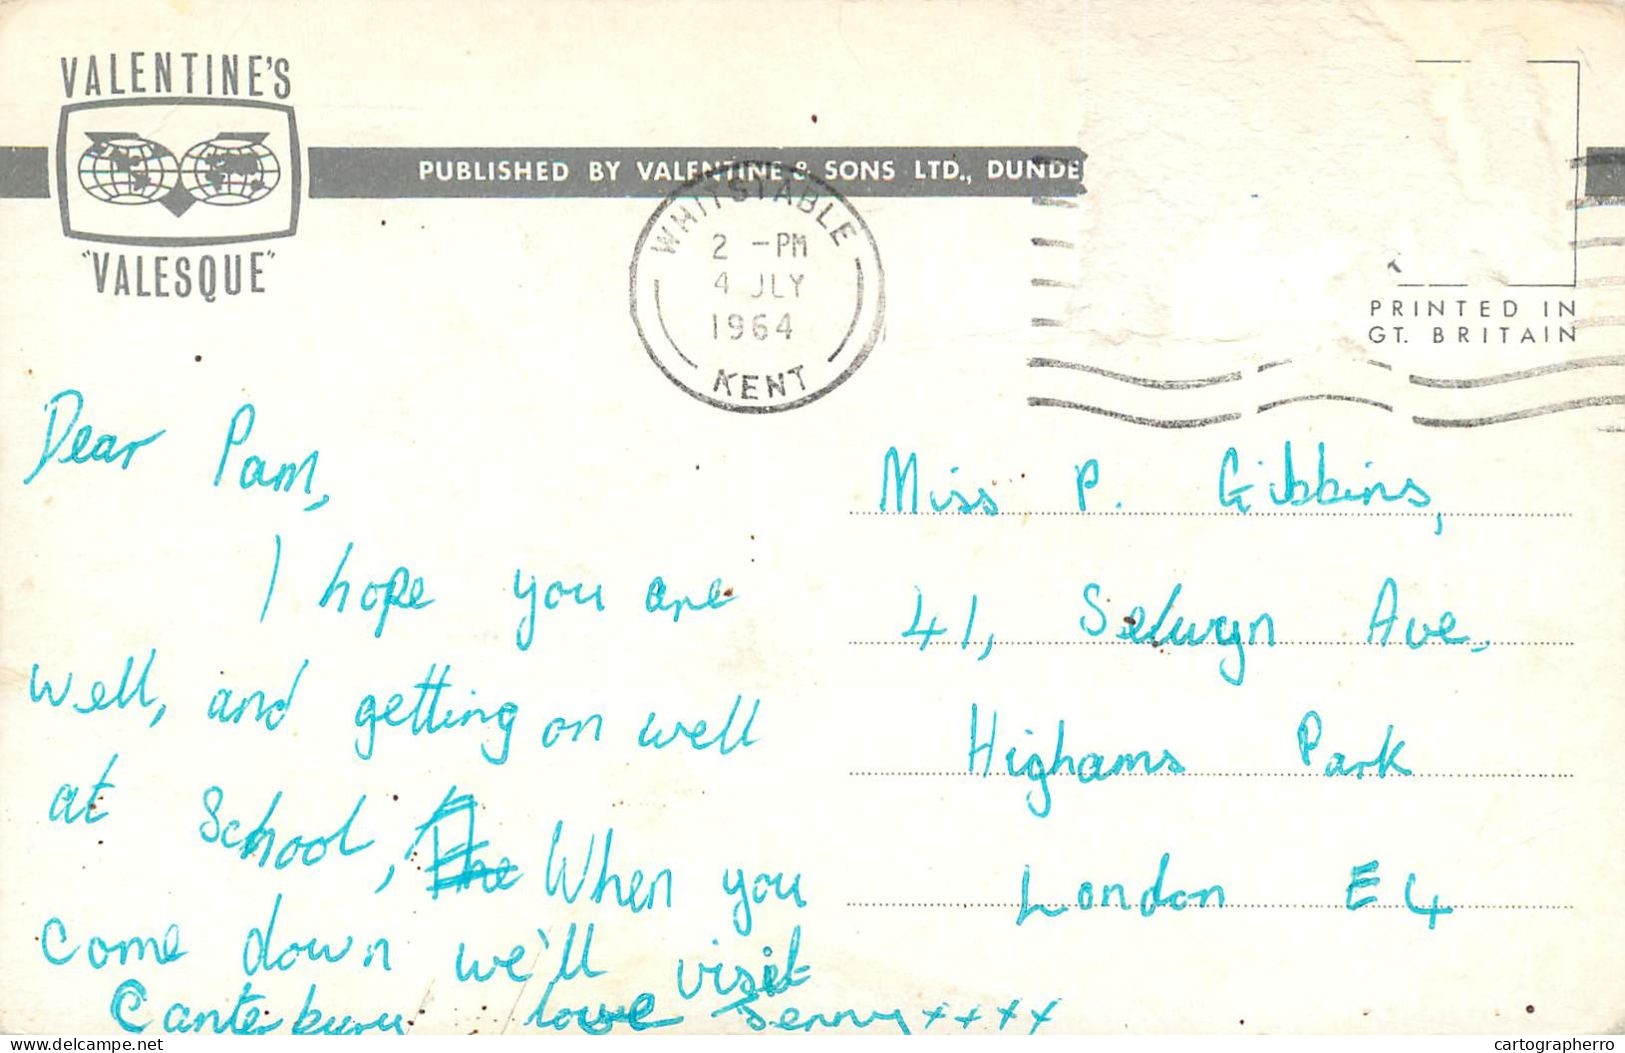 VALENTINE'S
"VALESQUE"
PUBLISHED BY VALENTINE & SONS LTD., DUNDE
WHITSTABLE
2 -PM
4 JLY
1964
KENT
PRINTED IN
GT. BRITAIN
Dear Pam,
I hope you are
well, and getting on well
at School, When you
come down we'll visit
Canterbury love Jenny xxxx
Miss P. Gibbins,
41, Selwyn Ave,
Highams Park
London E4
delcampe.net
cartographerro